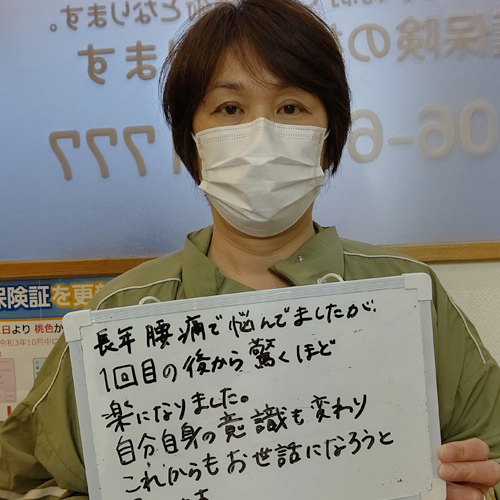 となります。
保険の
ます
06-6
777
保険証を更新
日より 桃色か
令和3年10月中に
長年 腰痛で悩んでましたが、
1回目の後から驚くほど
楽になりました。
自分自身の意識も変わり
これからもお世話になろうと